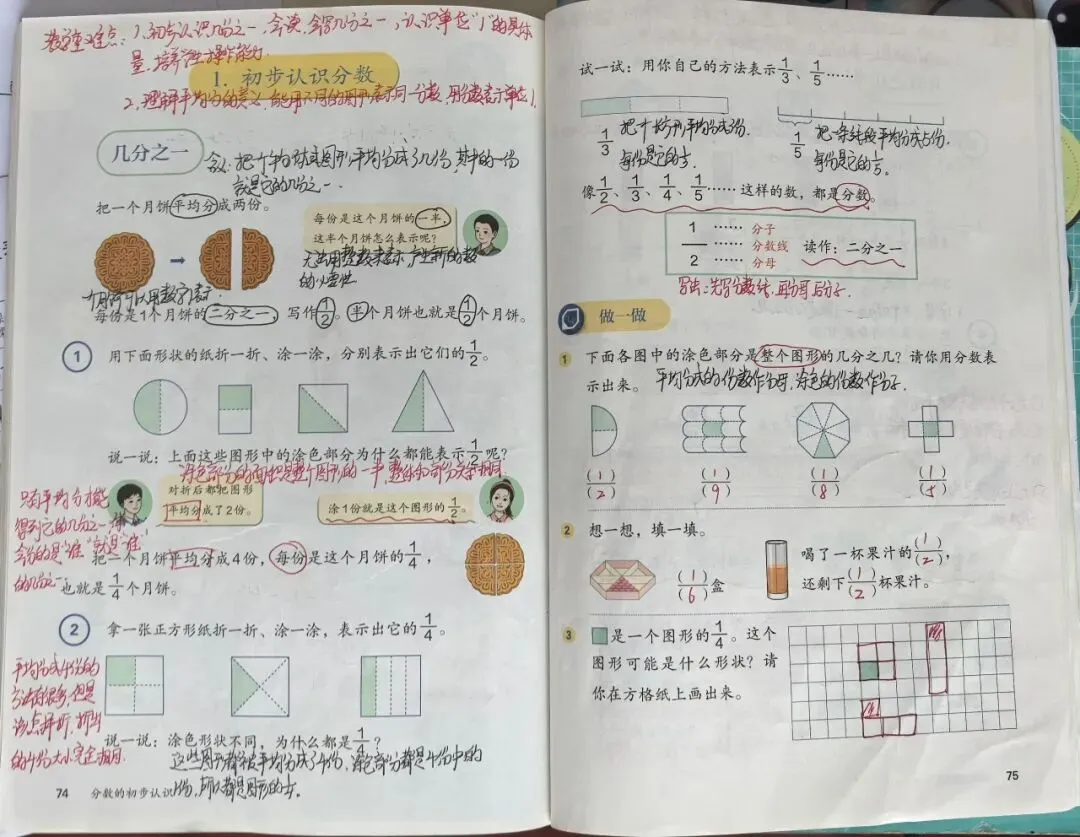 教学重难点：1.初步认识几分之一，会读、会写几分之一，认识单位"1"的具体
量，培养学生操作能力.
1. 初步认识分数
2.理解平均分的意义，能用不同的图形表示同一分数，用分数表示单位1.
几分之一
含义：把一个物体或图形平均分成了几份，其中的一份
就是它的几分之一.
把一个月饼平均分成两份。
每份是这个月饼的一半，
这半个月饼怎么表示呢？
无法用整数来表示，产生新的数
的必要性
一个月饼可以用数字1表示
每份是1个月饼的二分之一，写作1/2。半个月饼也就是1/2个月饼。
1 用下面形状的纸折一折、涂一涂，分别表示出它们的1/2。
说一说：上面这些图形中的涂色部分为什么都能表示1/2呢？
涂色部分的面积是整个图形的一半，整体和部分关系相同
对折后都把图形
平均分成了2份。
涂1份就是这个图形的1/2。
只有平均分才能
得到它的几分之一
的几分之一"
把一个月饼平均分成4份，每份是这个月饼的1/4，
也就是1/4个月饼。
2 拿一张正方形纸折一折、涂一涂，表示出它的1/4。
平均分成4份的
方法有很多，但是
折出
的4份大小完全相同.
说一说：涂色形状不同，为什么都是1/4？
这些图形都被平均分成了4份，涂色部分都是4份中的
1份，所以都是图形的1/4。
74 分数的初步认识
试一试：用你自己的方法表示1/3、1/5……
1/3 把一个长方形平均分成3份，
每份是它的1/3。
1/5 把一条线段平均分成5份，
每份是它的1/5。
像1/2、1/3、1/4、1/5……这样的数，都是分数。
1 …… 分子
—— …… 分数线 读作：二分之一
2 …… 分母
写法：先写分数线，再分母后分子.
做一做
1 下面各图中的涂色部分是整个图形的几分之几？请你用分数表
示出来。 平均分成的份数作分母，涂色的份数作分子.
(1)/(2) (1)/(9) (1)/(8) (1)/(5)
2 想一想，填一填。
(1)/(6)盒
喝了一杯果汁的(1)/(2)，
还剩下(1)/(2)杯果汁。
3 是一个图形的1/4。这个
图形可能是什么形状？请
你在方格纸上画出来。
75